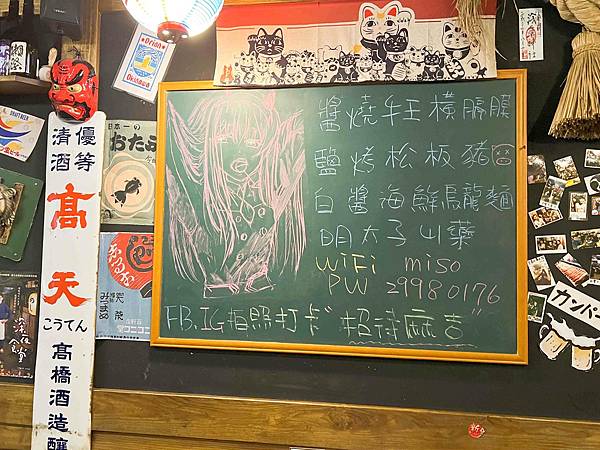 醬燒牛橫膈膜
鹽烤松板豬
白醬海鮮烏龍麵
明太子山藥
WiFi miso
PW 29980176
FB.IG拍照打卡"招待麻吉"
優等
清酒
高天
こうてん
髙橋酒造釀
ORION
Okinawa
日本一の
おたふ
カンパー
深夜食堂